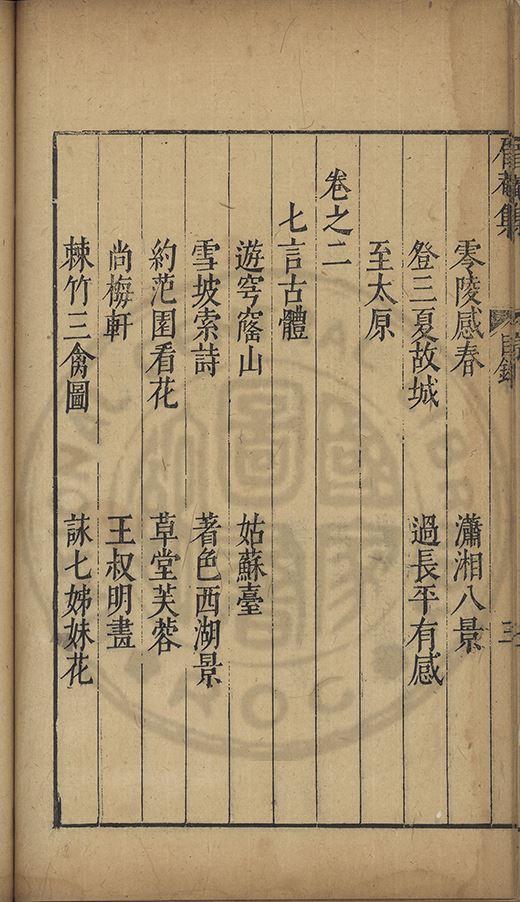 零陵感春 瀟湘八景
登三夏故城 過長平有感
至太原
卷之二
七言古體
遊穹窿山 姑蘇臺
雪坡索詩 著色西湖景
約范園看花 草堂芙蓉
尚梅軒 王叔明畫
棘竹三禽圖 詠七姊妹花